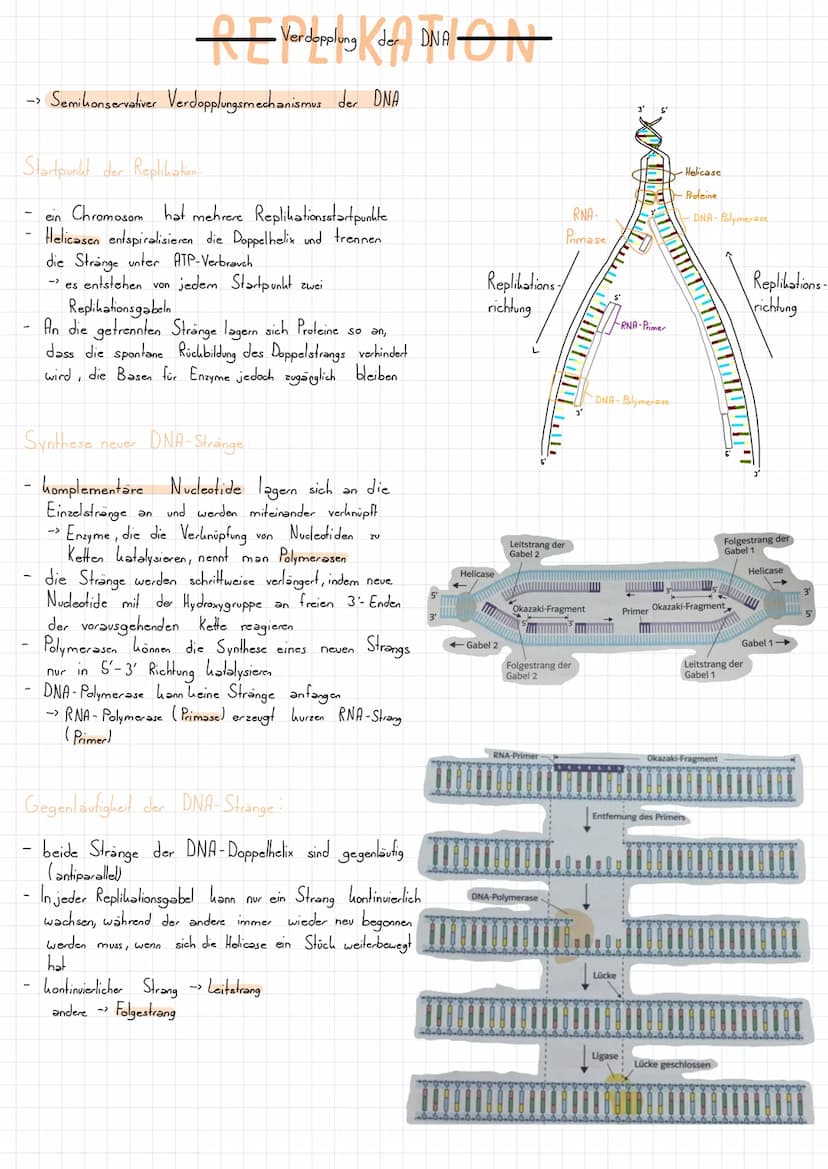 REPLIKATION
Verdopplung der DNA
-> Semikonservativer Verdopplungsmechanismus der DNA
Startpunkt der Replikation:
- ein Chromosom hat mehrere Replikationsstartpunkte
- Helicasen entspiralisieren die Doppelhelix und trennen
die Stränge unter ATP-Verbrauch
-> es entstehen von jedem Startpunkt zwei
Replikationsgabeln
- An die getrennten Stränge lagern sich Proteine so an,
dass die spontane Rückbildung des Doppelstrangs verhindert
wird, die Basen für Enzyme jedoch zugänglich bleiben
Synthese neuer DNA-Stränge
- komplementäre Nucleotide lagern sich an die
Einzelstränge an und werden miteinander verknüpft
-> Enzyme, die die Verknüpfung von Nucleotiden zu
Ketten katalysieren, nennt man Polymerasen
- die Stränge werden schrittweise verlängert, indem neue
Nucleotide mit der Hydroxygruppe an freien 3'-Enden
der vorausgehenden Kette reagieren
- Polymerasen können die Synthese eines neuen Strangs
nur in 5'-3' Richtung katalysieren
- DNA-Polymerase kann keine Stränge anfangen
-> RNA-Polymerase (Primase) erzeugt kurzen RNA-Strang
(Primer)
Gegenläufigkeit der DNA-Stränge:
- beide Stränge der DNA-Doppelhelix sind gegenläufig
(antiparallel)
- In jeder Replikationsgabel kann nur ein Strang kontinuierlich
wachsen, während der andere immer wieder neu begonnen
werden muss, wenn sich die Helicase ein Stück weiterbewegt
hat
- kontinuierlicher Strang -> Leitstrang
andere -> Folgestrang
3' 5'
Helicase
Proteine
RNA-
Primase
3'
DNA-Polymerase
Replikations-
richtung
Replikations-
richtung
5'
RNA-Primer
DNA-Polymerase
3'
5'
5'
3'
Leitstrang der
Gabel 2
Folgestrang der
Gabel 1
Helicase
Helicase
5'
3'
3'
5'
3'
5'
Okazaki-Fragment
Primer
Okazaki-Fragment
5'
3'
Gabel 2
Gabel 1
Folgestrang der
Gabel 2
Leitstrang der
Gabel 1
RNA-Primer
Okazaki-Fragment
Entfernung des Primers
DNA-Polymerase
Lücke
Ligase
Lücke geschlossen